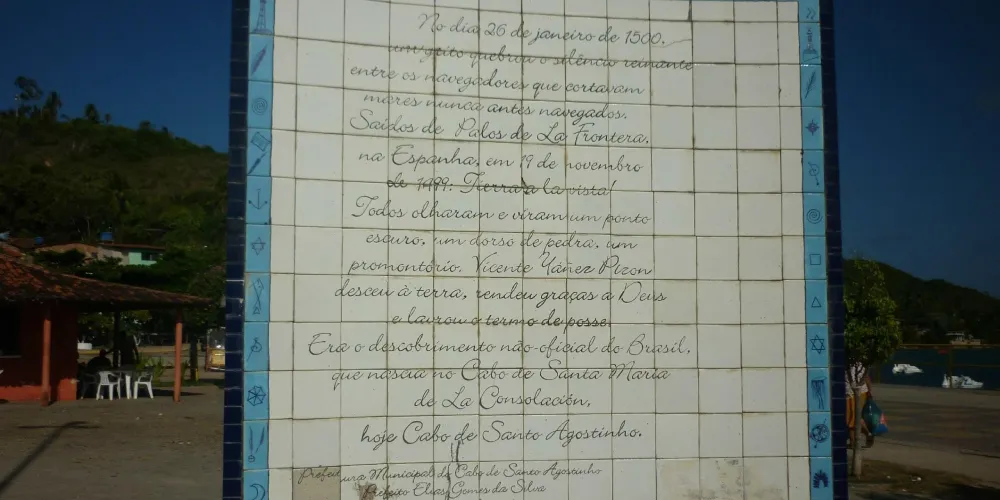 No dia 26 de janeiro de 1500,
um grito quebrou o silêncio reinante
entre os navegadores que cortavam
mares nunca antes navegados.
Saídos de Palos de La Frontera,
na Espanha, em 19 de novembro
de 1499: Tierra a la vista!
Todos olharam e viram um ponto
escuro, um dorso de pedra, um
promontório. Vicente Yáñez Pizon
desceu à terra, rendeu graças a Deus
e lavrou o termo de posse.
Era o descobrimento não-oficial do Brasil,
que nascia no Cabo de Santa Maria
de La Consolación,
hoje Cabo de Santo Agostinho.
Prefeitura Municipal do Cabo de Santo Agostinho
Prefeito Elias Gomes da Silva